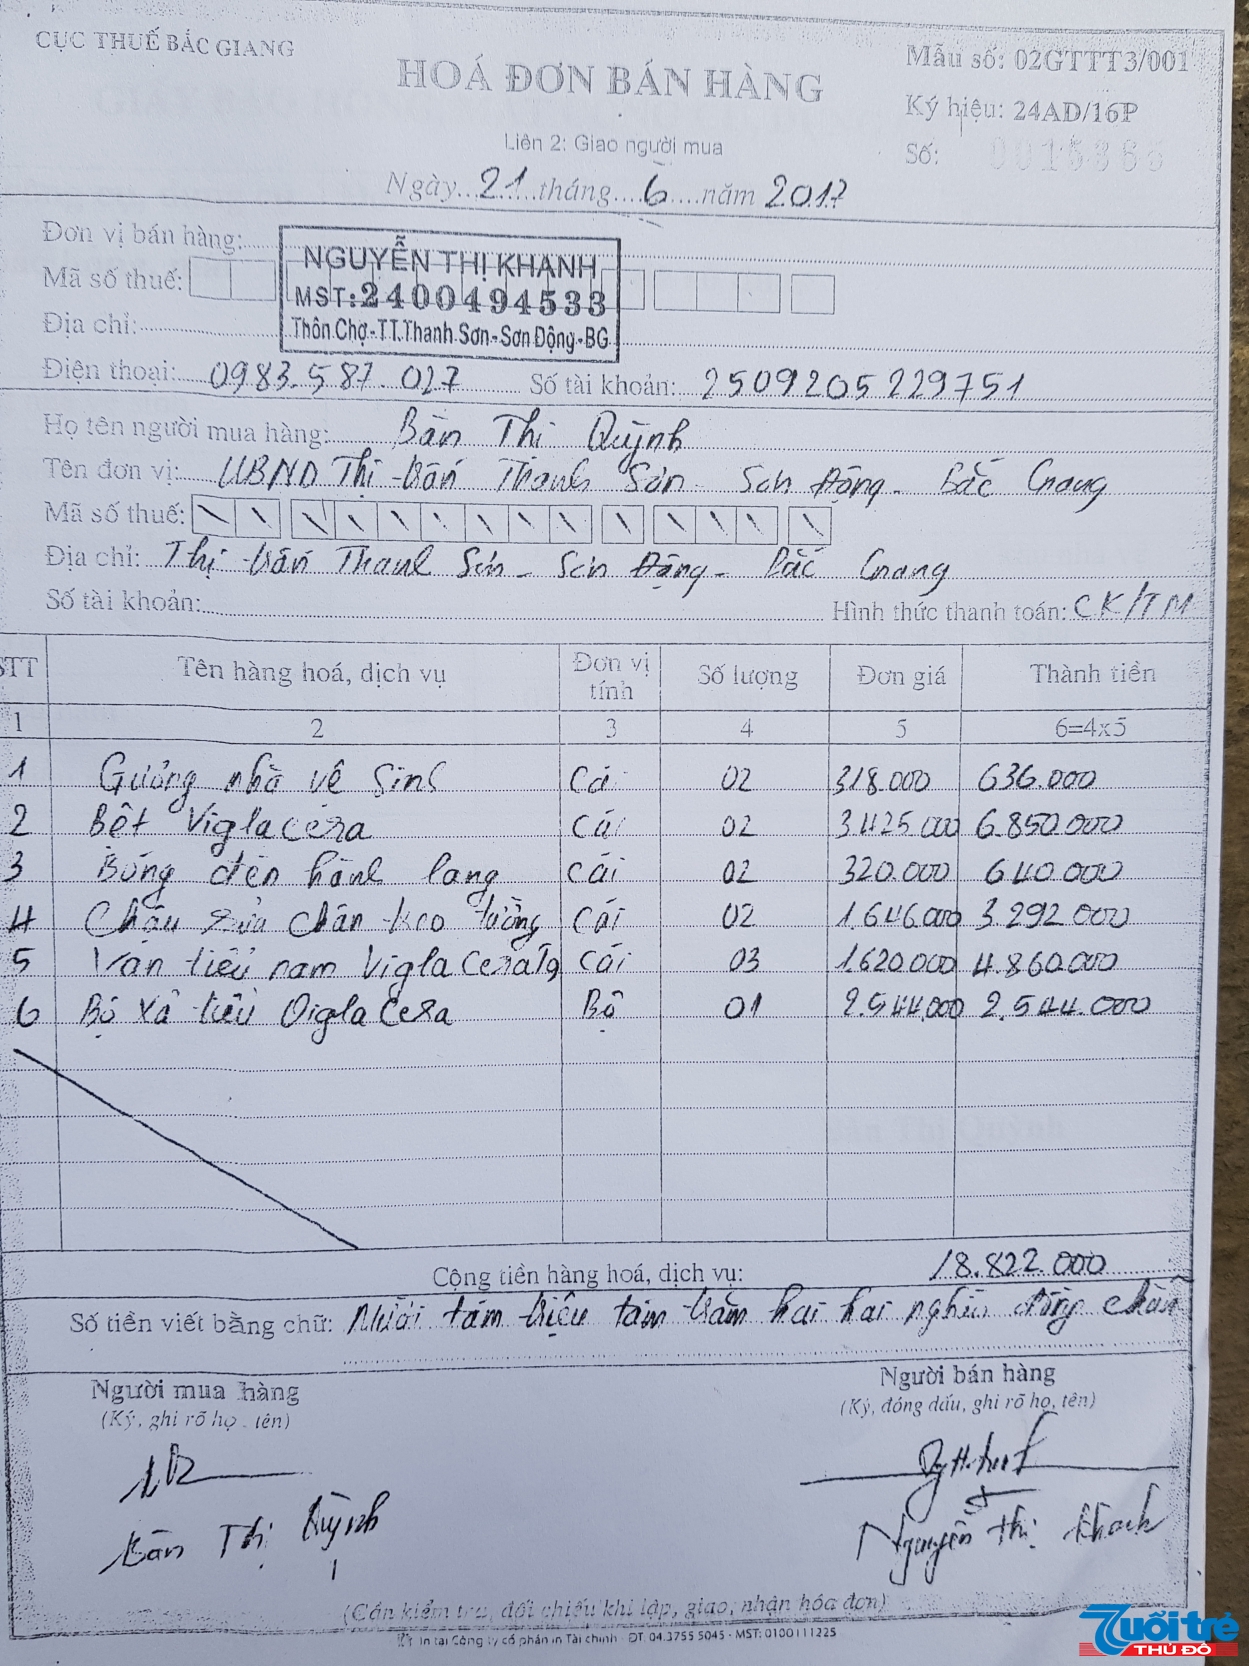 CỤC THUẾ BẮC GIANG
HOÁ ĐƠN BÁN HÀNG
Mẫu số: 02GTTT3/001
Ký hiệu: 24AD/16P
Liên 2: Giao người mua
Số:
Ngày...21...tháng....6....năm 2017
Đơn vị bán hàng:
NGUYỄN THỊ KHANH
Mã số thuế:
MST: 2400494533
Địa chỉ:
Thôn Chợ-TT.Thanh Sơn-Sơn Động-BG
Điện thoại: 0983.587.027 Số tài khoản: 2509205229751
Họ tên người mua hàng: Bàn Thị Quỳnh
Tên đơn vị: UBND Thị trấn Thanh Sơn - Sơn Động - Bắc Giang
Mã số thuế:
Địa chỉ: Thị trấn Thanh Sơn - Sơn Động - Bắc Giang
Số tài khoản: Hình thức thanh toán: CK/TM
STT Tên hàng hoá, dịch vụ Đơn vị tính Số lượng Đơn giá Thành tiền
1 2 3 4 5 6=4x5
1 Gương nhà vệ sinh Cái 02 318.000 636.000
2 Bệt Viglacera Cái 02 3.425.000 6.850.000
3 Bóng đèn hành lang Cái 02 320.000 640.000
4 Chậu rửa chân treo tường Cái 02 1.646.000 3.292.000
5 Van tiểu nam Viglacera Cái 03 1.620.000 4.860.000
6 Bộ xả tiểu Viglacera Bộ 01 2.544.000 2.544.000
Cộng tiền hàng hoá, dịch vụ: 18.822.000
Số tiền viết bằng chữ: Mười tám triệu tám trăm hai hai nghìn đồng chẵn
Người mua hàng
Người bán hàng
(Ký, ghi rõ họ, tên)
(Ký, đóng dấu, ghi rõ họ, tên)
Bàn Thị Quỳnh
Nguyễn Thị Khanh
(Cần kiểm tra, đối chiếu khi lập, giao, nhận hóa đơn)
In tại Công ty cổ phần in Tài chính - ĐT: 04.3755 5045 - MST: 0100111225
Tuổi trẻ
THỦ ĐÔ